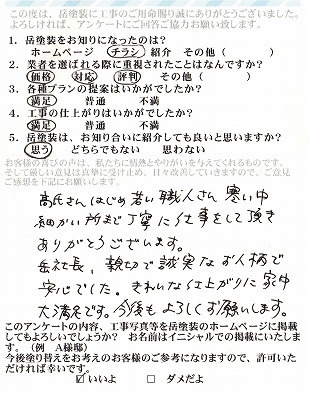 この度は、岳塗装に工事のご用命賜り誠にありがとうございました。
よろしければ、アンケートにご回答ご協力お願い致します。
1. 岳塗装をお知りになったのは?
ホームページ チラシ 紹介 その他( )
2. 業者を選ばれる際に重視されたことはなんですか?
価格 対応 評判 その他( )
3. 各種プランの提案はいかがでしたか?
満足 普通 不満
4. 工事の仕上がりはいかがでしたか?
満足 普通 不満
5. 岳塗装は、お知り合いに紹介しても良いと思いますか?
思う どちらでもない 思わない
お客様の喜びの声は、私たちに情熱とやりがいを与えてくれるものです。
そして厳しい意見は真摯に受け止め、日々改善していきますので、ご意見
ご感想を下記にお願いします。
高氏さんはじめ若い職人さん 寒い中
細かい所まで丁寧に仕事をして頂き
ありがとうございます。
岳社長、親切で誠実なお人柄で
安心でした。きれいな仕上がりに家中
大満足です。今後もよろしくお願いします。
このアンケートの内容、工事写真等を岳塗装のホームページに掲載
してもよろしいでしょうか? お名前はイニシャルでの掲載にいたしま
す。(例 A様邸)
今後塗り替えをお考えのお客様のご参考になりますので、許可いた
だければ幸いです。
☑ いいよ □ ダメだよ